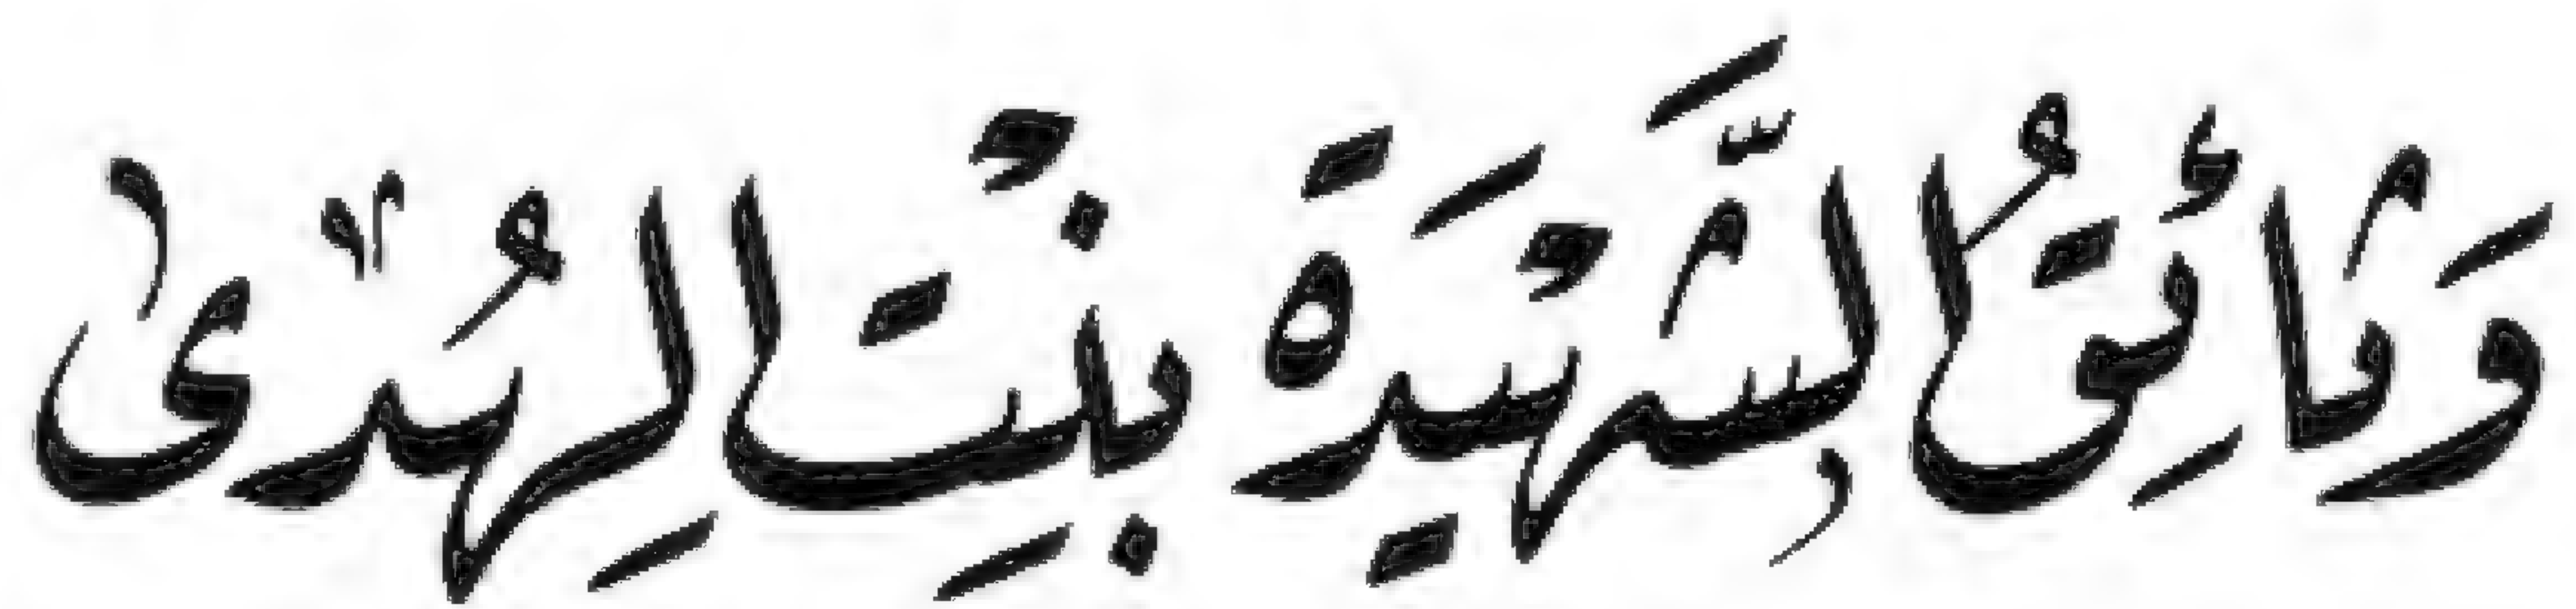 وَثائِقُ الشَّهيدَة بِنتِ الهُدىٰ